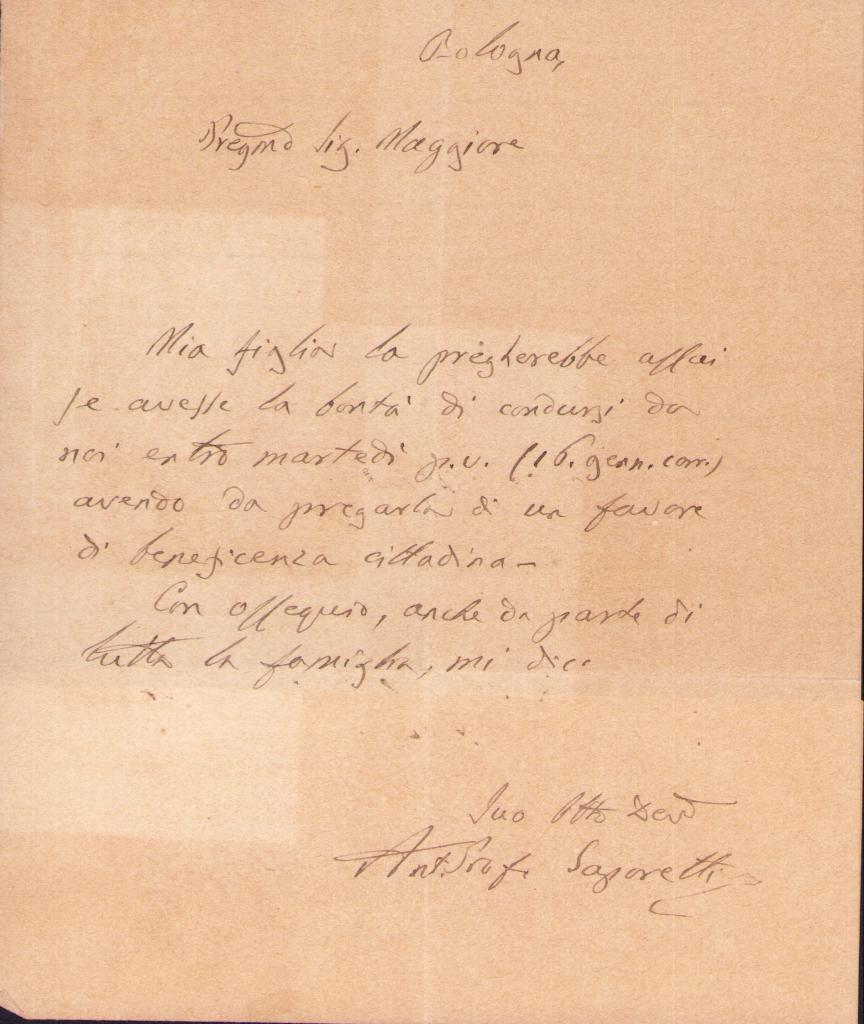 Bologna,
Pregmo Sig. Maggiore
Mia figlia la pregherebbe assai
se avesse la bontà di condursi da
noi entro martedì p.v. (16. genn. corr.)
avendo da pregarla di un favore
di beneficenza cittadina -
Con ossequio, anche da parte di
tutta la famiglia, mi dico
Suo Obbo Devo
Ant. Prof. Saporetti